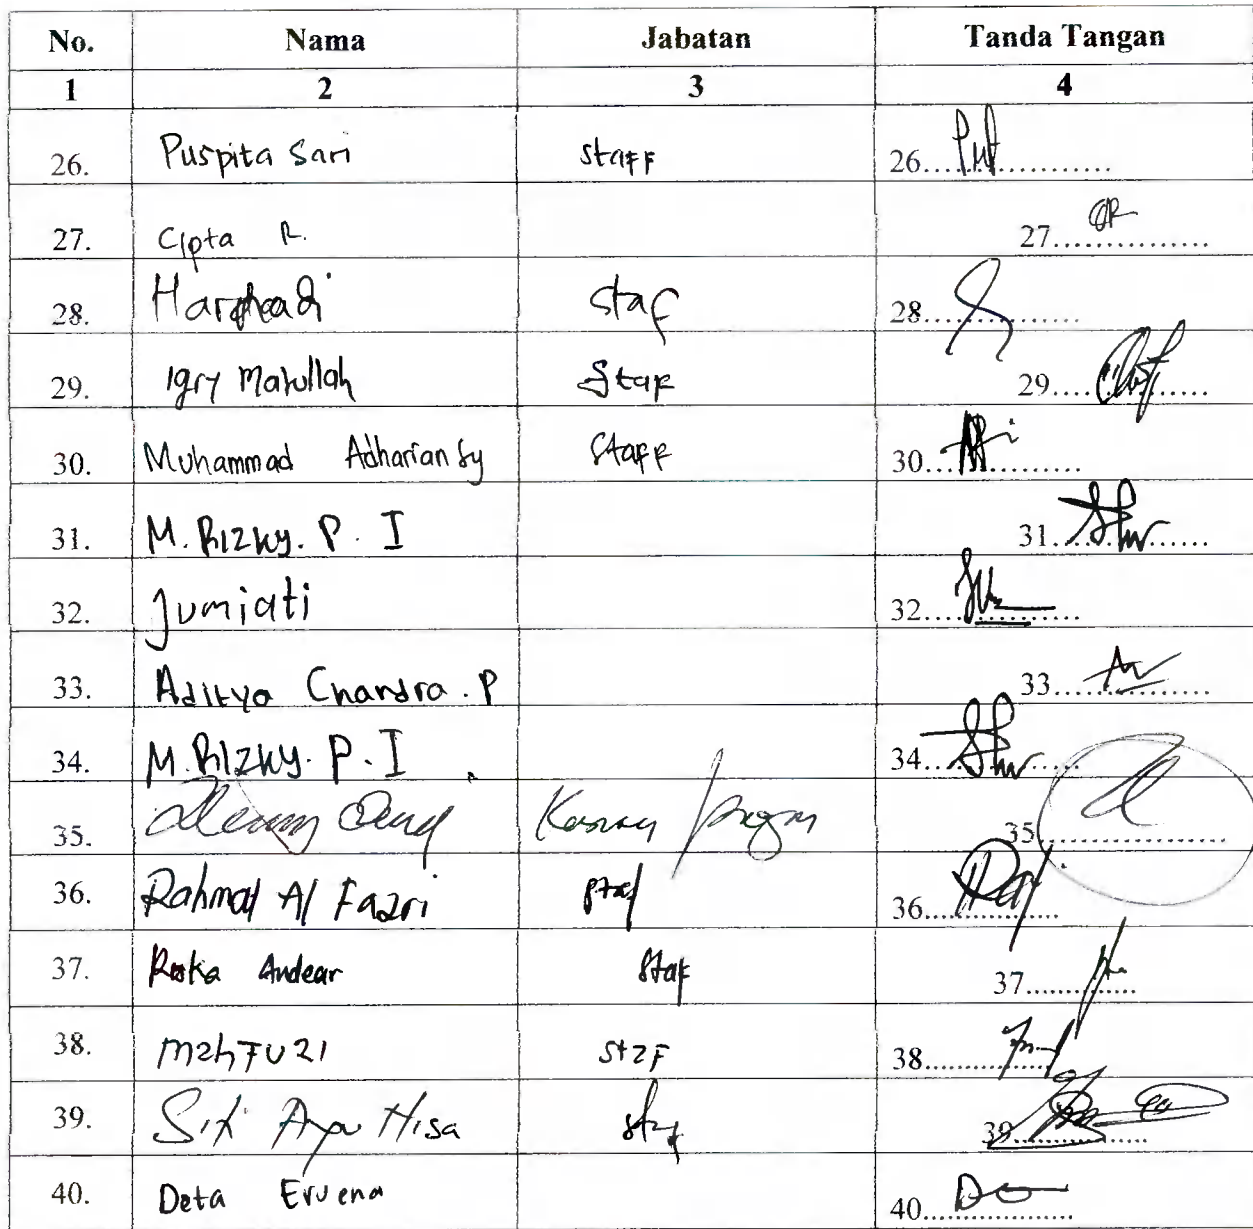 No. Nama Jabatan Tanda Tangan
1 2 3 4
26. Puspita Sari Staff 26....................
27. Cipta R. 27...............
28. staf 28...............
29. Igry Matullah Staf 29...............
30. Muhammad Adhariansy Staff 30...............
31. M. Rizky. P. I 31...............
32. Jumiati 32...............
33. Aditya Chandra. P 33...............
34. M. Rizky. P. I 34...............
35. 35...............
36. Rahmat Al Fazri staf 36...............
37. Andear Staf 37...............
38. mahfuzi staf 38...............
39. Siti Ayu Hisa staf 39...............
40. Deta Ervena 40...............